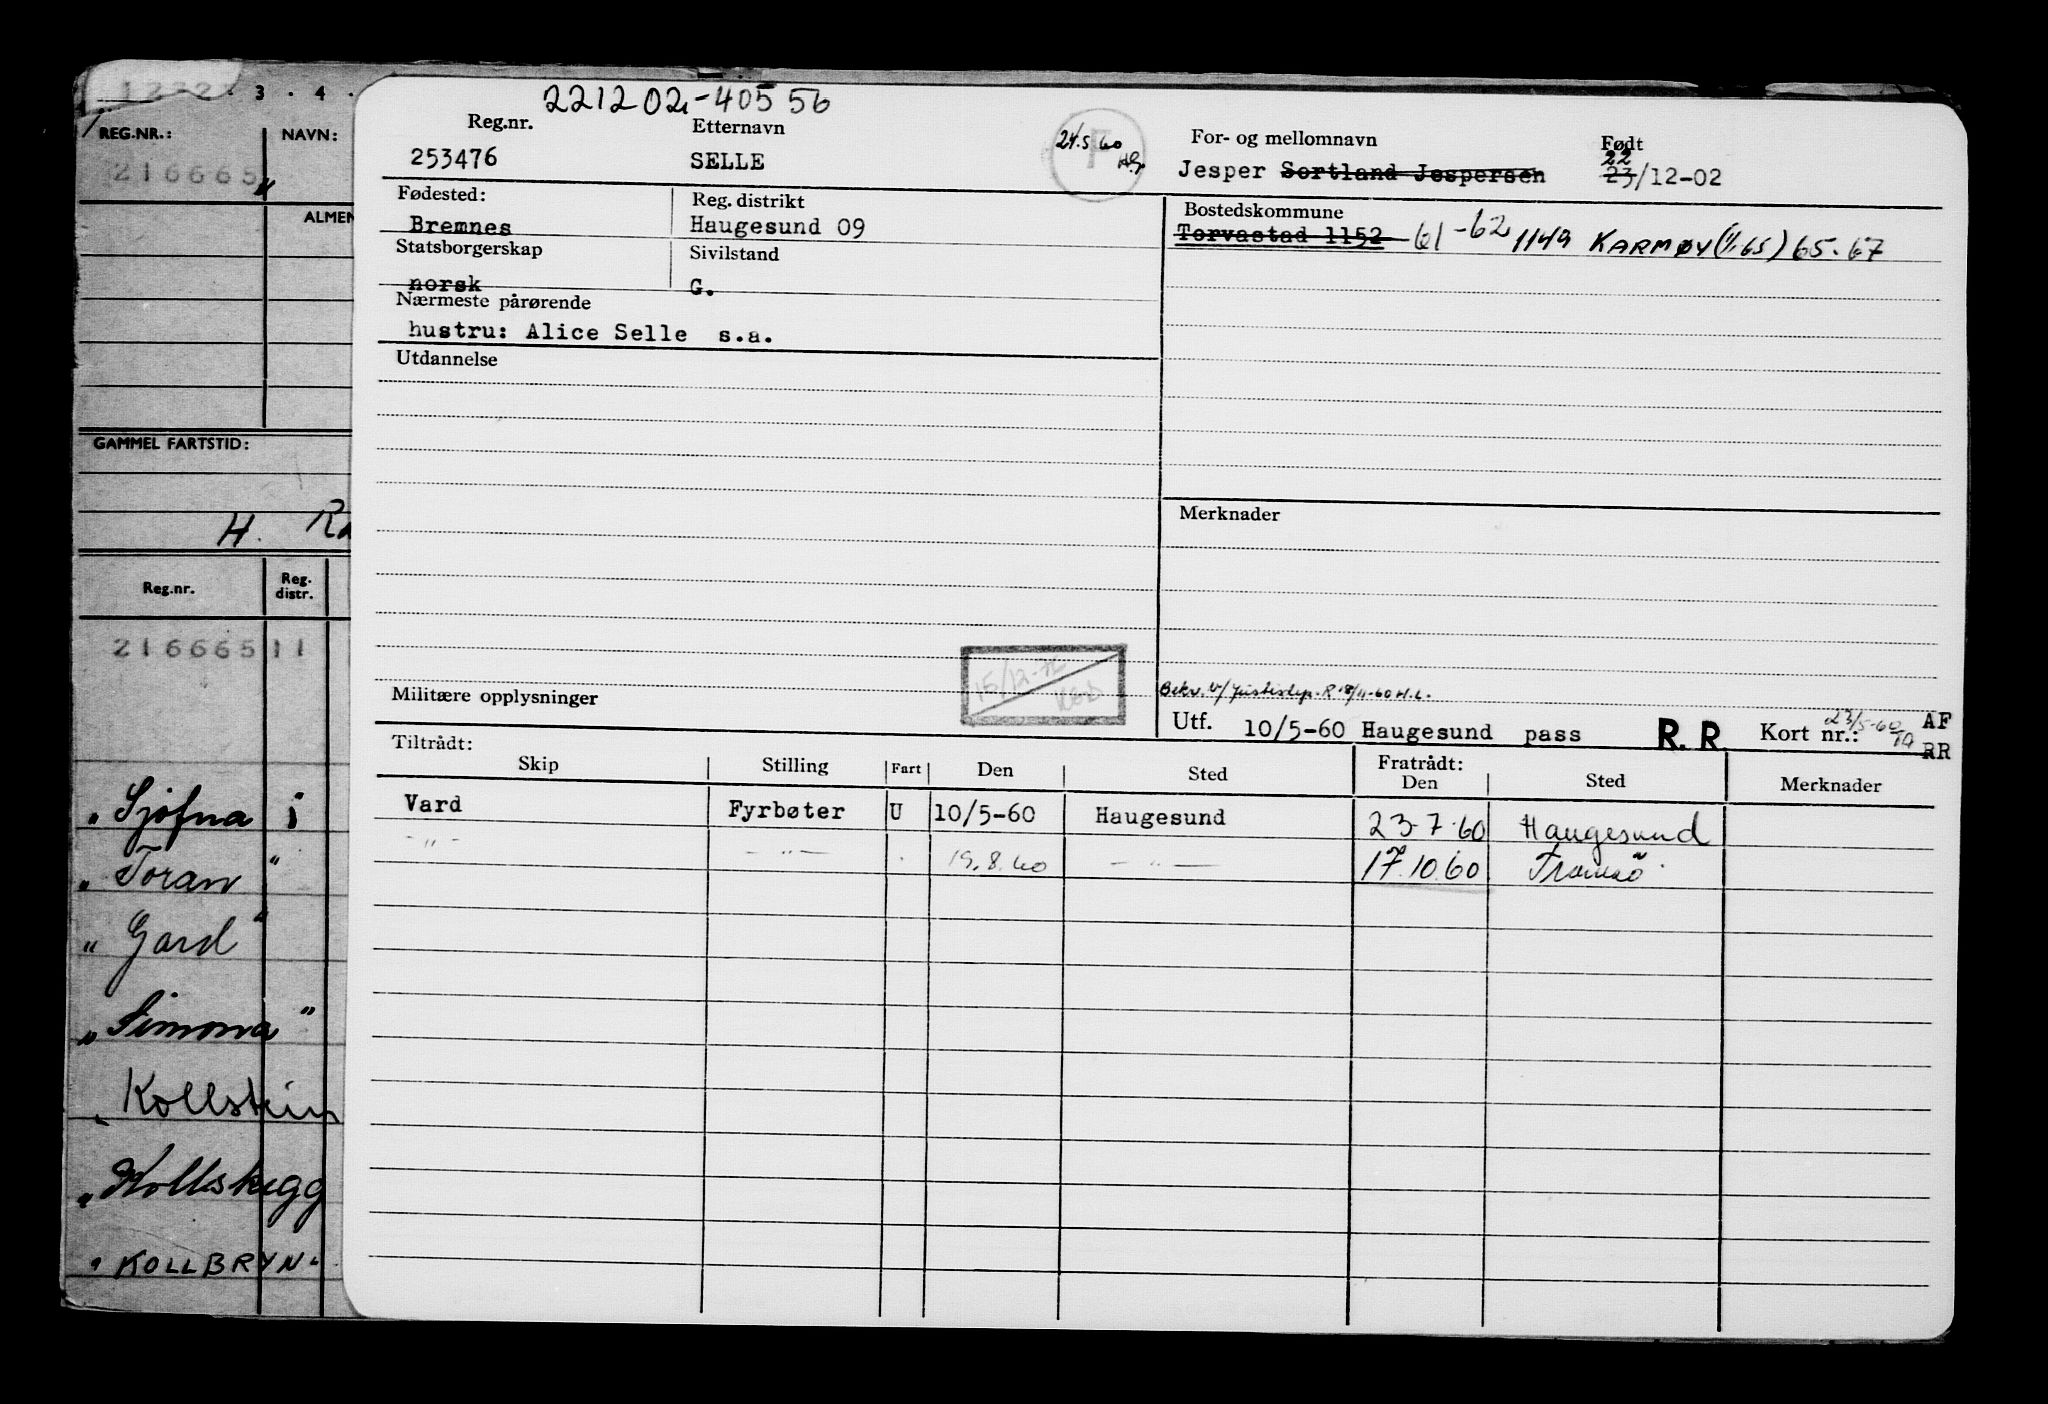 1 2 2 2 . 3 . 4 .
REG.NR.: NAVN:
216665
ALMEN
GAMMEL FARTSTID:
H.
Reg.nr. Reg. distr.
216665 11
" Sjofna i
" Toran "
" Gard "
" Simona "
" Kollstein
" Kollskegg
" KOLLBRYN "
221202-40556
Reg.nr. Etternavn For- og mellomnavn Født
24.5.60 F 22
253476 SELLE Jesper Sortland Jespersen 23/12-02
Fødested: Reg. distrikt Bostedskommune
Bremnes Haugesund 09 Torvastad 1152 61-62 1149 KARMØY (1/1.65) 65.67
Statsborgerskap Sivilstand
norsk G.
Nærmeste pårørende
hustru: Alice Selle s.a.
Utdannelse
Merknader
15/12-
Militære opplysninger
Bekr. v/ Justisdep. R 18/11-60 H.L.
Utf. 10/5-60 Haugesund pass R.R. Kort nr.: 23/5-60 AF
RR
Tiltrådt: Fratrådt:
Skip Stilling Fart Den Sted Den Sted Merknader
Vard Fyrbøter U 10/5-60 Haugesund 23-7-60 Haugesund
- " - - " - 19.8.60 - " - 17.10.60 Tromsö